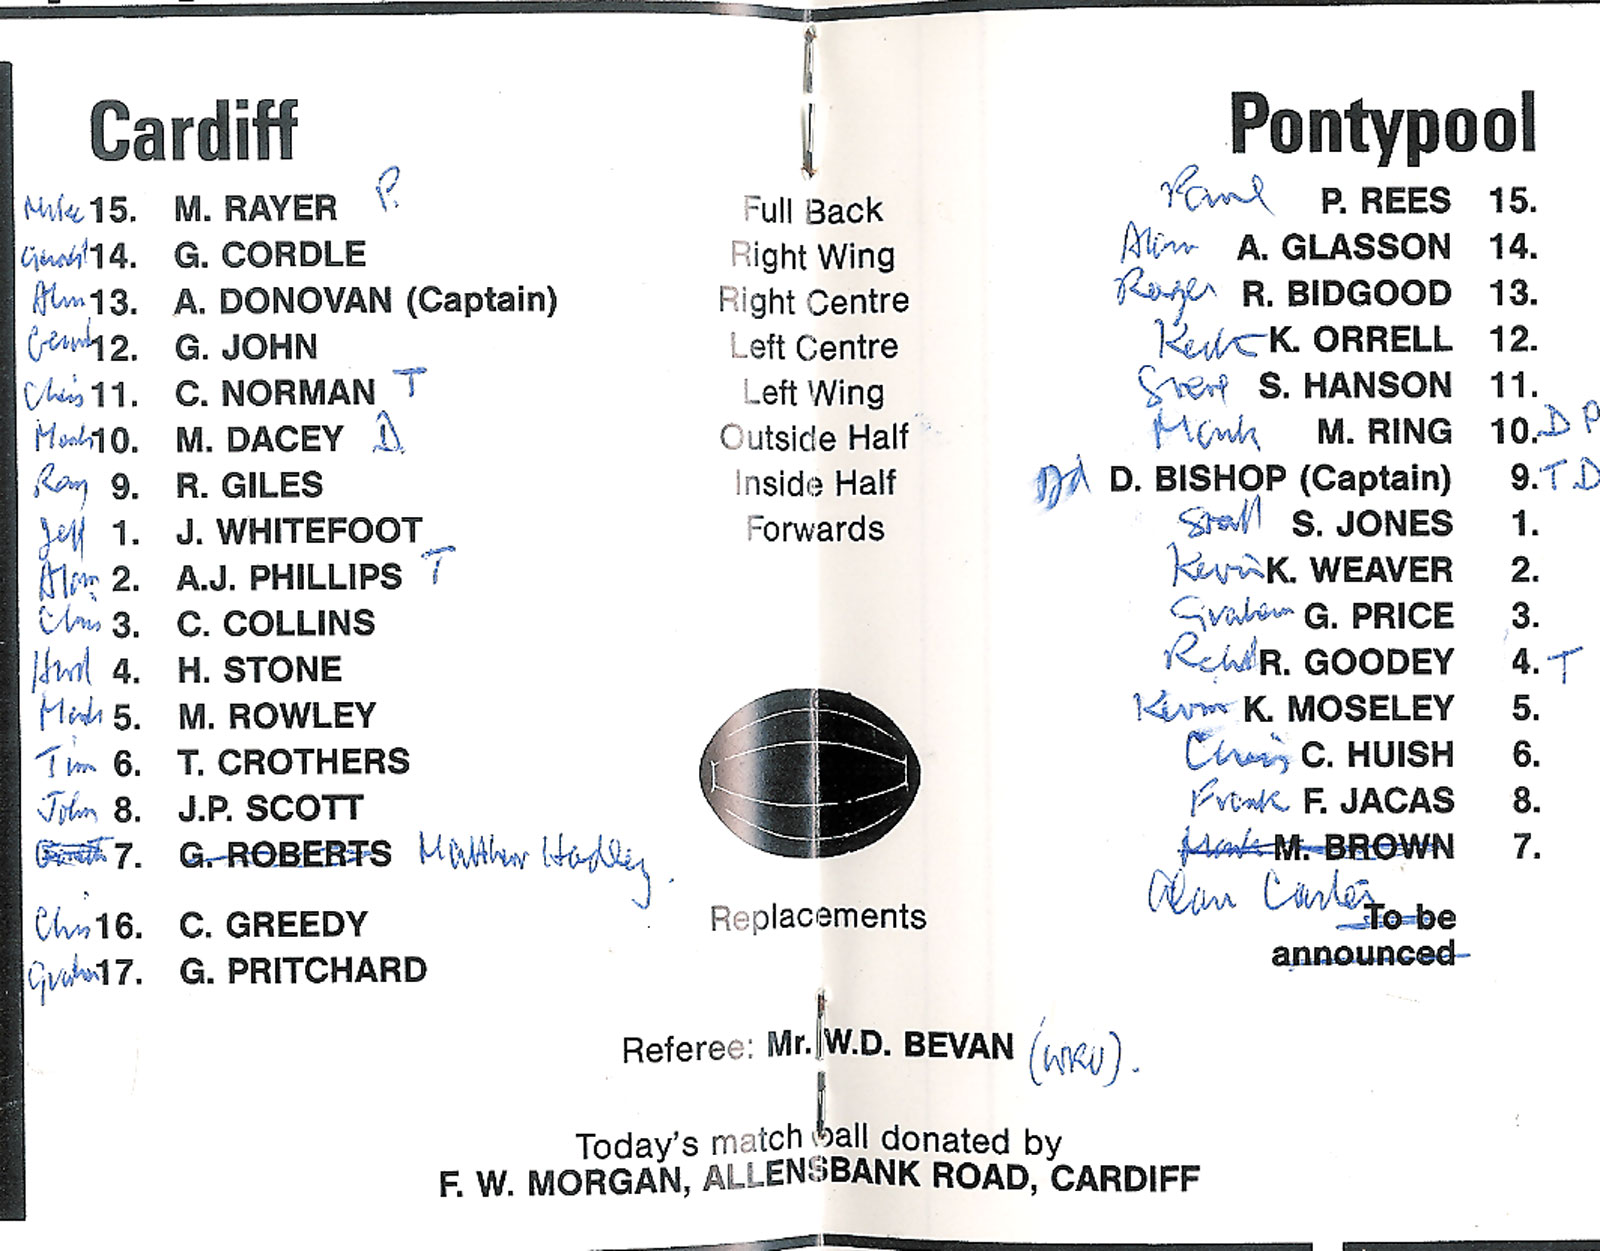 Cardiff Pontypool
Mike 15. M. RAYER P. Full Back Paul P. REES 15.
14. G. CORDLE Right Wing Alan A. GLASSON 14.
Alan 13. A. DONOVAN (Captain) Right Centre Roger R. BIDGOOD 13.
12. G. JOHN Left Centre Keith K. ORRELL 12.
Chris 11. C. NORMAN T Left Wing Steve S. HANSON 11.
Mark 10. M. DACEY D Outside Half Mark M. RING 10. D P
Ray 9. R. GILES Inside Half D. BISHOP (Captain) 9. T D
Jeff 1. J. WHITEFOOT Forwards S. JONES 1.
Alan 2. A.J. PHILLIPS T Kevin K. WEAVER 2.
Chris 3. C. COLLINS Graham G. PRICE 3.
4. H. STONE R. GOODEY 4. T
Mark 5. M. ROWLEY Kevin K. MOSELEY 5.
Tim 6. T. CROTHERS Chris C. HUISH 6.
John 8. J.P. SCOTT Frank F. JACAS 8.
7. G. ROBERTS Matthew Hadley. Mark M. BROWN 7.
Alan Carter
Chris 16. C. GREEDY Replacements To be
Graham 17. G. PRITCHARD announced
Referee: Mr. W.D. BEVAN (WRU).
Today's match ball donated by
F. W. MORGAN, ALLENSBANK ROAD, CARDIFF